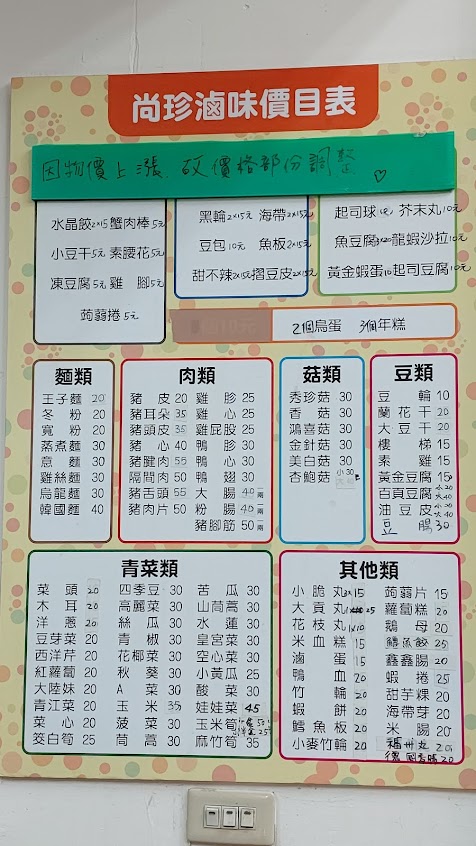 尚珍滷味價目表
因物價上漲、故價格部份調整
水晶餃2×15 蟹肉棒5元
小豆干5元 素腰花5元
凍豆腐5元 雞 腳5元
蒟蒻捲5元
黑輪2×15元 海帶2×15元
豆包10元 魚板2×15元
甜不辣2×15元 摺豆皮2×15元
起司球10元 芥末丸10元
魚豆腐3×20 龍蝦沙拉10元
黃金蝦蛋10 起司豆腐10元
2個鳥蛋 3個年糕
麵類
王子麵 20
冬粉 20
寬粉 20
蒸煮麵 30
意麵 30
雞絲麵 30
烏龍麵 30
韓國麵 40
肉類
豬皮 20 雞胗 25
豬耳朵 35 雞心 25
豬頭皮 35 雞屁股 25
豬心 40 鴨胗 30
豬腱肉 55 鴨心 30
隔間肉 50 鴨翅 30
豬舌頭 55 大腸 40一兩
豬肉片 50 粉腸 40一兩
豬腳筋 50一兩
菇類
秀珍菇 30
香菇 30
鴻喜菇 30
金針菇 30
美白菇 30
杏鮑菇 小30
豆類
豆輪 10
蘭花干 20
大豆干 20
樓梯 15
素雞 15
黃金豆腐 15
百頁豆腐 小20 大40
油豆皮 小20 大40
豆腸 30
青菜類
菜頭 20 四季豆 30 苦瓜 30
木耳 20 高麗菜 30 山茼蒿 30
洋蔥 20 絲瓜 30 水蓮 30
豆芽菜 20 青椒 30 皇宮菜 30
西洋芹 20 花椰菜 30 空心菜 30
紅蘿蔔 20 秋葵 30 小黃瓜 25
大陸妹 20 A菜 30 酸菜 30
青江菜 20 玉米 35 娃娃菜 45
菜心 20 菠菜 30 玉米筍
筊白筍 25 茼蒿 30 麻竹筍 35
其他類
小脆丸 2×15 蒟蒻片 15
大貢丸 25 蘿蔔糕 20
花枝丸 1×10 鵝母 20
米血糕 15 鱈魚餃 25
滷蛋 15 鑫鑫腸 20
鴨血 20 蝦捲 25
竹輪 20 甜芋粿 20
蝦餅 20 海帶芽 20
鱈魚板 20 米腸 20
小麥竹輪 20 福州丸
德國香腸 20